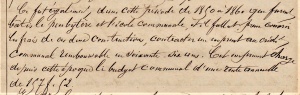 Ce fut également dans cette période de 1850 à 1860 que furent
bâtis le presbytère et l'école communale. Il fallut pour couvrir
les frais de ces deux constructions contracter un emprunt au crédit
communal remboursable en soixante six ans. Cet emprunt charge
depuis cette époque le budget communal d'une rente annuelle
de